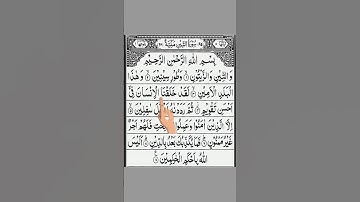 بِسْمِ اللهِ الرَّحْمٰنِ الرَّحِيْمِ
وَالتِّيْنِ وَالزَّيْتُوْنِ وَطُوْرِ سِيْنِيْنَ وَهٰذَا
الْبَلَدِ الْاَمِيْنِ لَقَدْ خَلَقْنَا الْاِنْسَانَ فِيْٓ
اَحْسَنِ تَقْوِيْمٍ ثُمَّ رَدَدْنٰهُ سٰفِلِيْنَ
اِلَّا الَّذِيْنَ اٰمَنُوْا وَعَمِلُوا فَلَهُمْ اَجْرٌ
غَيْرُ مَمْنُوْنٍ فَمَا يُكَذِّبُكَ بَعْدُ بِالدِّيْنِ اَلَيْسَ
اللهُ بِاَحْكَمِ الْحٰكِمِيْنَ